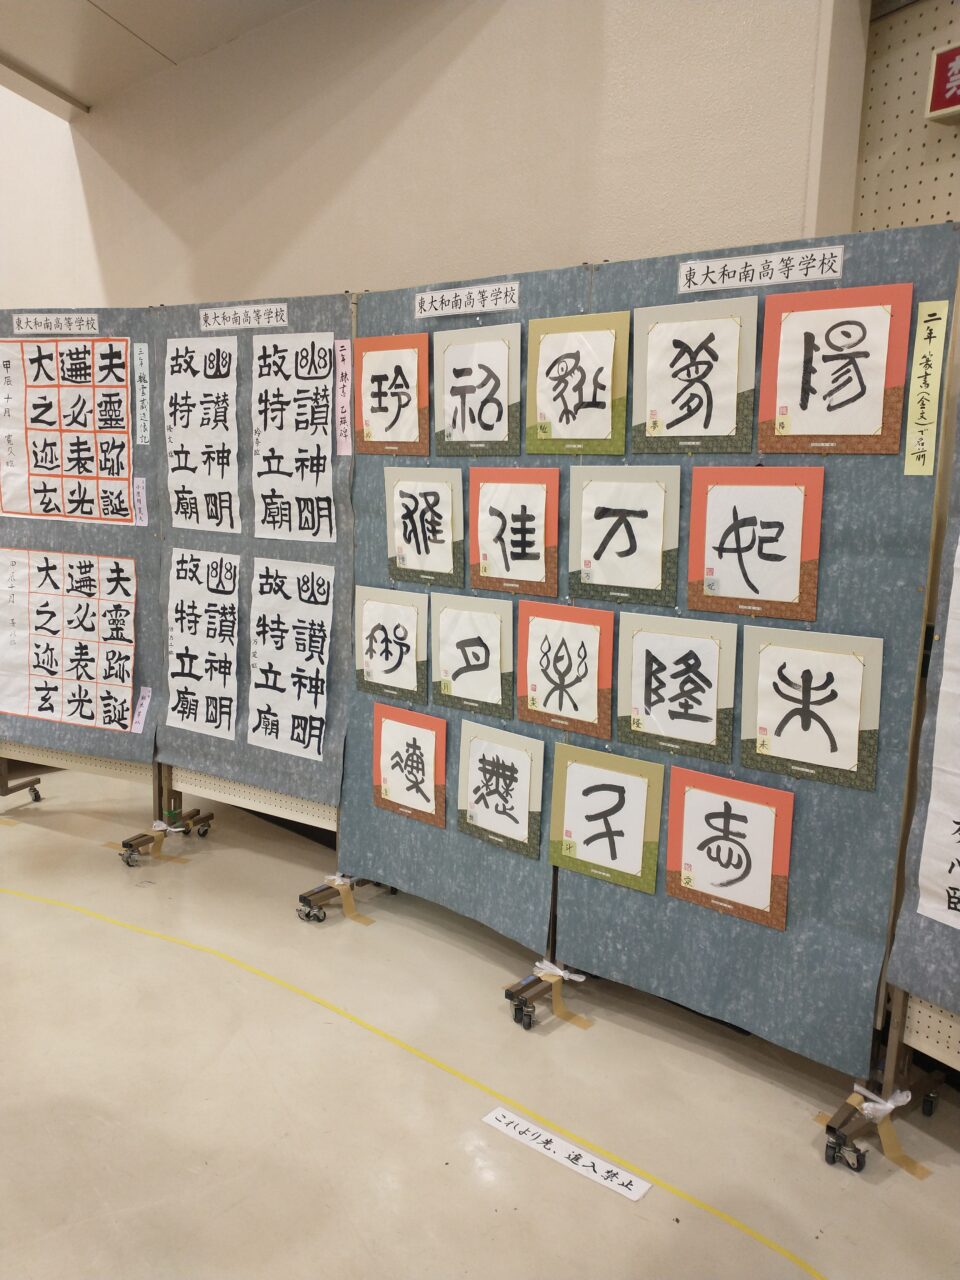 東大和南高等学校
東大和南高等学校
東大和南高等学校
東大和南高等学校
二年 篆書(金文)で名前
陽
夢
祐
玲
妃
万
佳
雅
未
隆
楽
月
彬
優
二年 隷書 乙瑛碑
幽讃神明
故特立廟
幽讃神明
故特立廟
幽讃神明
故特立廟
幽讃神明
故特立廟
夫靈跡誕
遘必表光
大之迹玄
甲辰十月
夫靈跡誕
遘必表光
大之迹玄
甲辰十月
これより先、進入禁止
禁